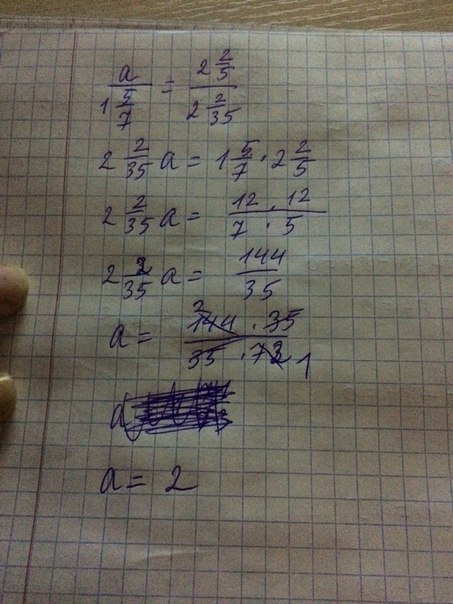 a / 1 5/7 = 2 2/5 / 2 2/35
2 2/35 a = 1 5/7 · 2 2/5
2 2/35 a = 12 · 12 / 7 · 5
2 2/35 a = 144/35
a = 2 144 · 35 / 35 · 72 1
a = 2